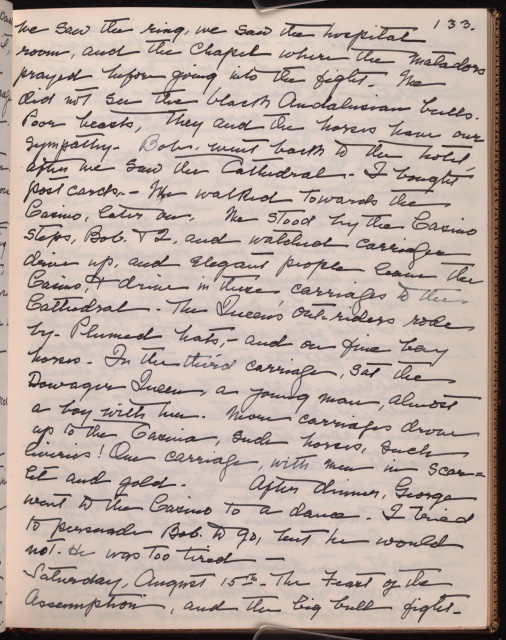 133.
we saw the ring, we saw the hospital
room, and the Chapel where the Matadors
prayed before going into the fight. We
did not see the black Andalusian bulls.
Poor beasts, they and the horses have our
sympathy. Bob. went back to the hotel
after we saw the Cathedral. I bought
post cards. - We walked towards the
Casino, later on. We stood by the Casino
steps, Bob. & I, and watched carriages
drive up, and elegant people leave the
Casino & drive in these carriages to the
Cathedral. The Queen's Out-riders rode
by - Plumed hats, - and on fine bay
horses - In the third carriage, sat the
Dowager Queen, a young man, almost
a boy with her. More carriages drove
up to the Casino, such horses, such
liveries! One carriage, with men in scar=
let and gold. After dinner, George
went to the Casino to a dance. I tried
to persuade Bob. to go, but he would
not. He was too tired -
Saturday, August 15th - The Feast of the
Assumption, and the big bull fight -